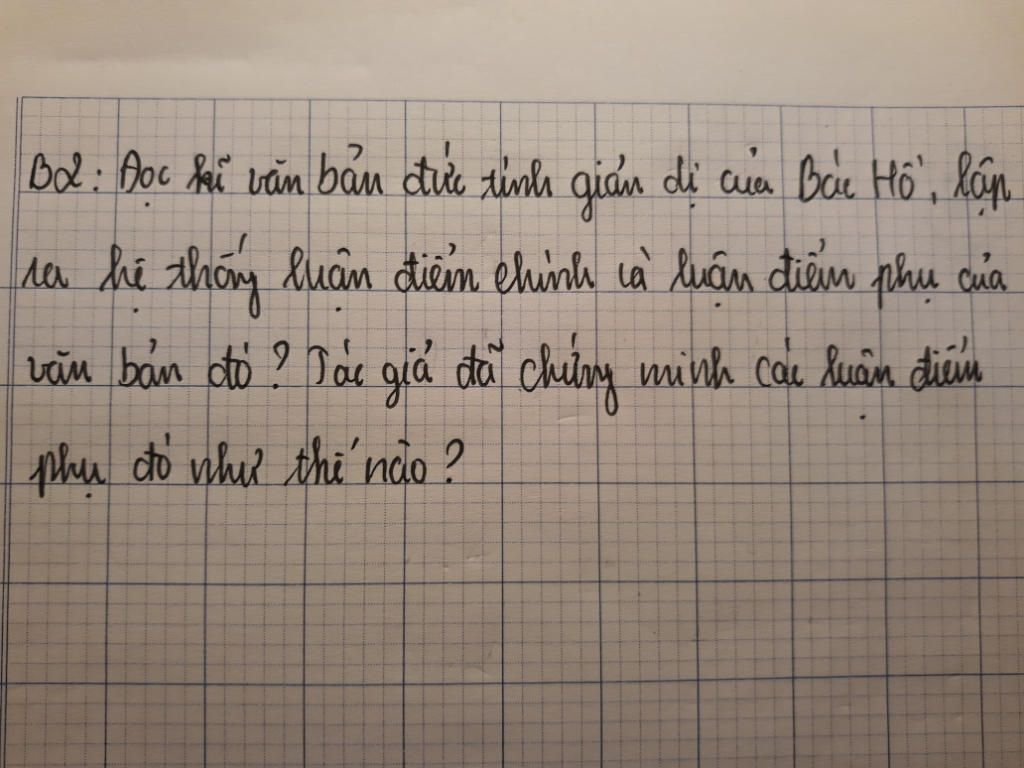 B2: Đọc kĩ văn bản đức tính giản dị của Bác Hồ, lận
ra hệ thống luận điểm chính và luận điểm phụ của
văn bản đó? Tác giả đã chứng minh các luận điểm
phụ đó như thế nào?